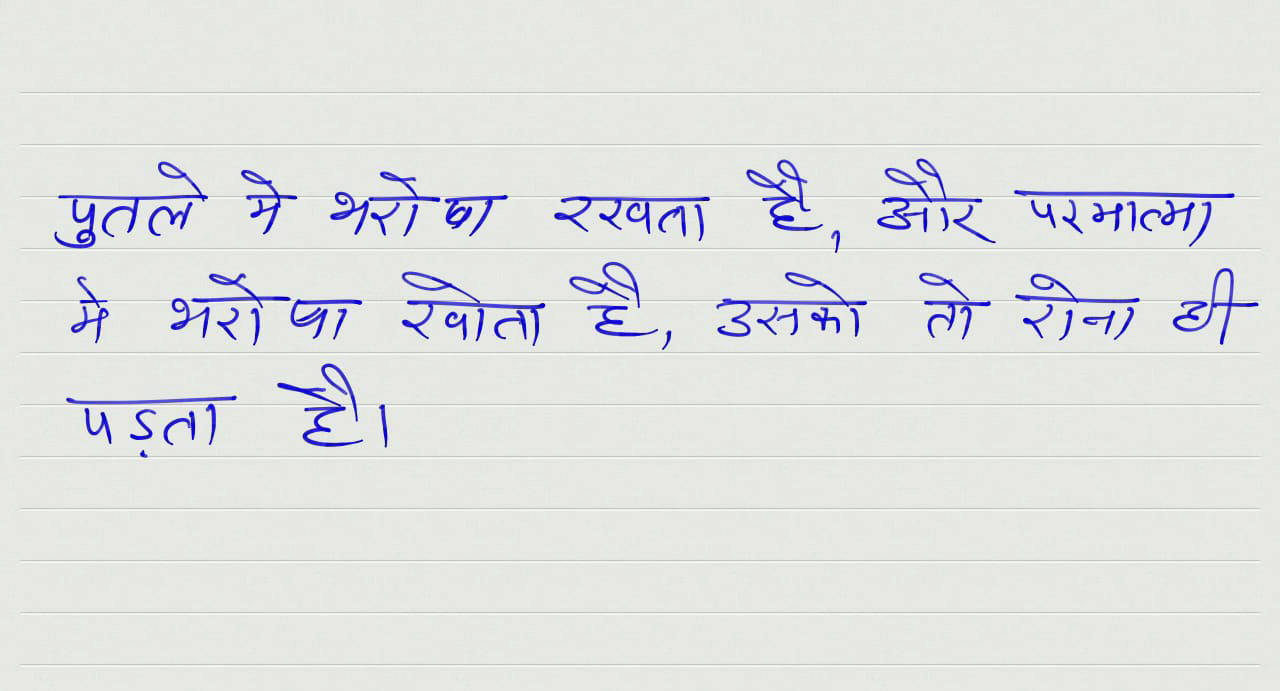 पुतले मे भरोषा रखता है, और परमात्मा
मे भरोषा खोता है, उसको तो रोना ही
पड़ता है।